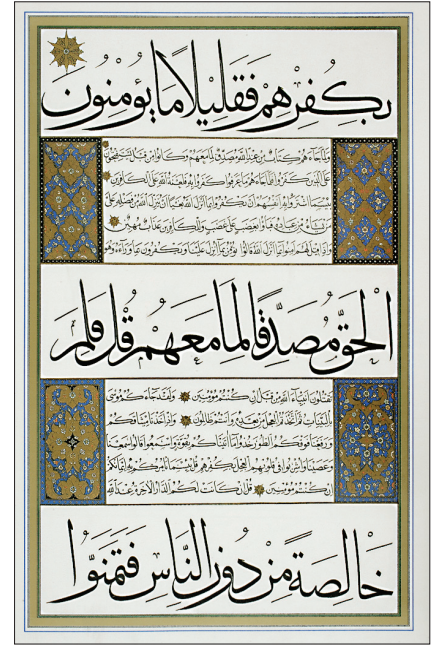 بِكُفْرِهِمْ فَقَلِيلًا مَا يُؤْمِنُونَ
وَلَمَّا جَاءَهُمْ كِتَابٌ مِنْ عِنْدِ اللَّهِ مُصَدِّقٌ لِمَا مَعَهُمْ وَكَانُوا مِنْ قَبْلُ يَسْتَفْتِحُونَ
عَلَى الَّذِينَ كَفَرُوا فَلَمَّا جَاءَهُمْ مَا عَرَفُوا كَفَرُوا بِهِ فَلَعْنَةُ اللَّهِ عَلَى الْكَافِرِينَ
بِئْسَمَا اشْتَرَوْا بِهِ أَنْفُسَهُمْ أَنْ يَكْفُرُوا بِمَا أَنْزَلَ اللَّهُ بَغْيًا أَنْ يُنَزِّلَ اللَّهُ مِنْ فَضْلِهِ عَلَى
مَنْ يَشَاءُ مِنْ عِبَادِهِ فَبَاؤُ بِغَضَبٍ عَلَى غَضَبٍ وَلِلْكَافِرِينَ عَذَابٌ مُهِينٌ
وَإِذَا قِيلَ لَهُمْ آمِنُوا بِمَا أَنْزَلَ اللَّهُ قَالُوا نُؤْمِنُ بِمَا أُنْزِلَ عَلَيْنَا وَيَكْفُرُونَ بِمَا وَرَاءَهُ وَهُوَ
الْحَقُّ مُصَدِّقًا لِمَا مَعَهُمْ قُلْ فَلِمَ
تَقْتُلُونَ أَنْبِيَاءَ اللَّهِ مِنْ قَبْلُ إِنْ كُنْتُمْ مُؤْمِنِينَ وَلَقَدْ جَاءَكُمْ مُوسَى
بِالْبَيِّنَاتِ ثُمَّ اتَّخَذْتُمُ الْعِجْلَ مِنْ بَعْدِهِ وَأَنْتُمْ ظَالِمُونَ وَإِذْ أَخَذْنَا مِيثَاقَكُمْ
وَرَفَعْنَا فَوْقَكُمُ الطُّورَ خُذُوا مَا آتَيْنَاكُمْ بِقُوَّةٍ وَاسْمَعُوا قَالُوا سَمِعْنَا
وَعَصَيْنَا وَأُشْرِبُوا فِي قُلُوبِهِمُ الْعِجْلَ بِكُفْرِهِمْ قُلْ بِئْسَمَا يَأْمُرُكُمْ بِهِ إِيمَانُكُمْ
إِنْ كُنْتُمْ مُؤْمِنِينَ قُلْ إِنْ كَانَتْ لَكُمُ الدَّارُ الْآخِرَةُ عِنْدَ اللَّهِ
خَالِصَةً مِنْ دُونِ النَّاسِ فَتَمَنَّوُا